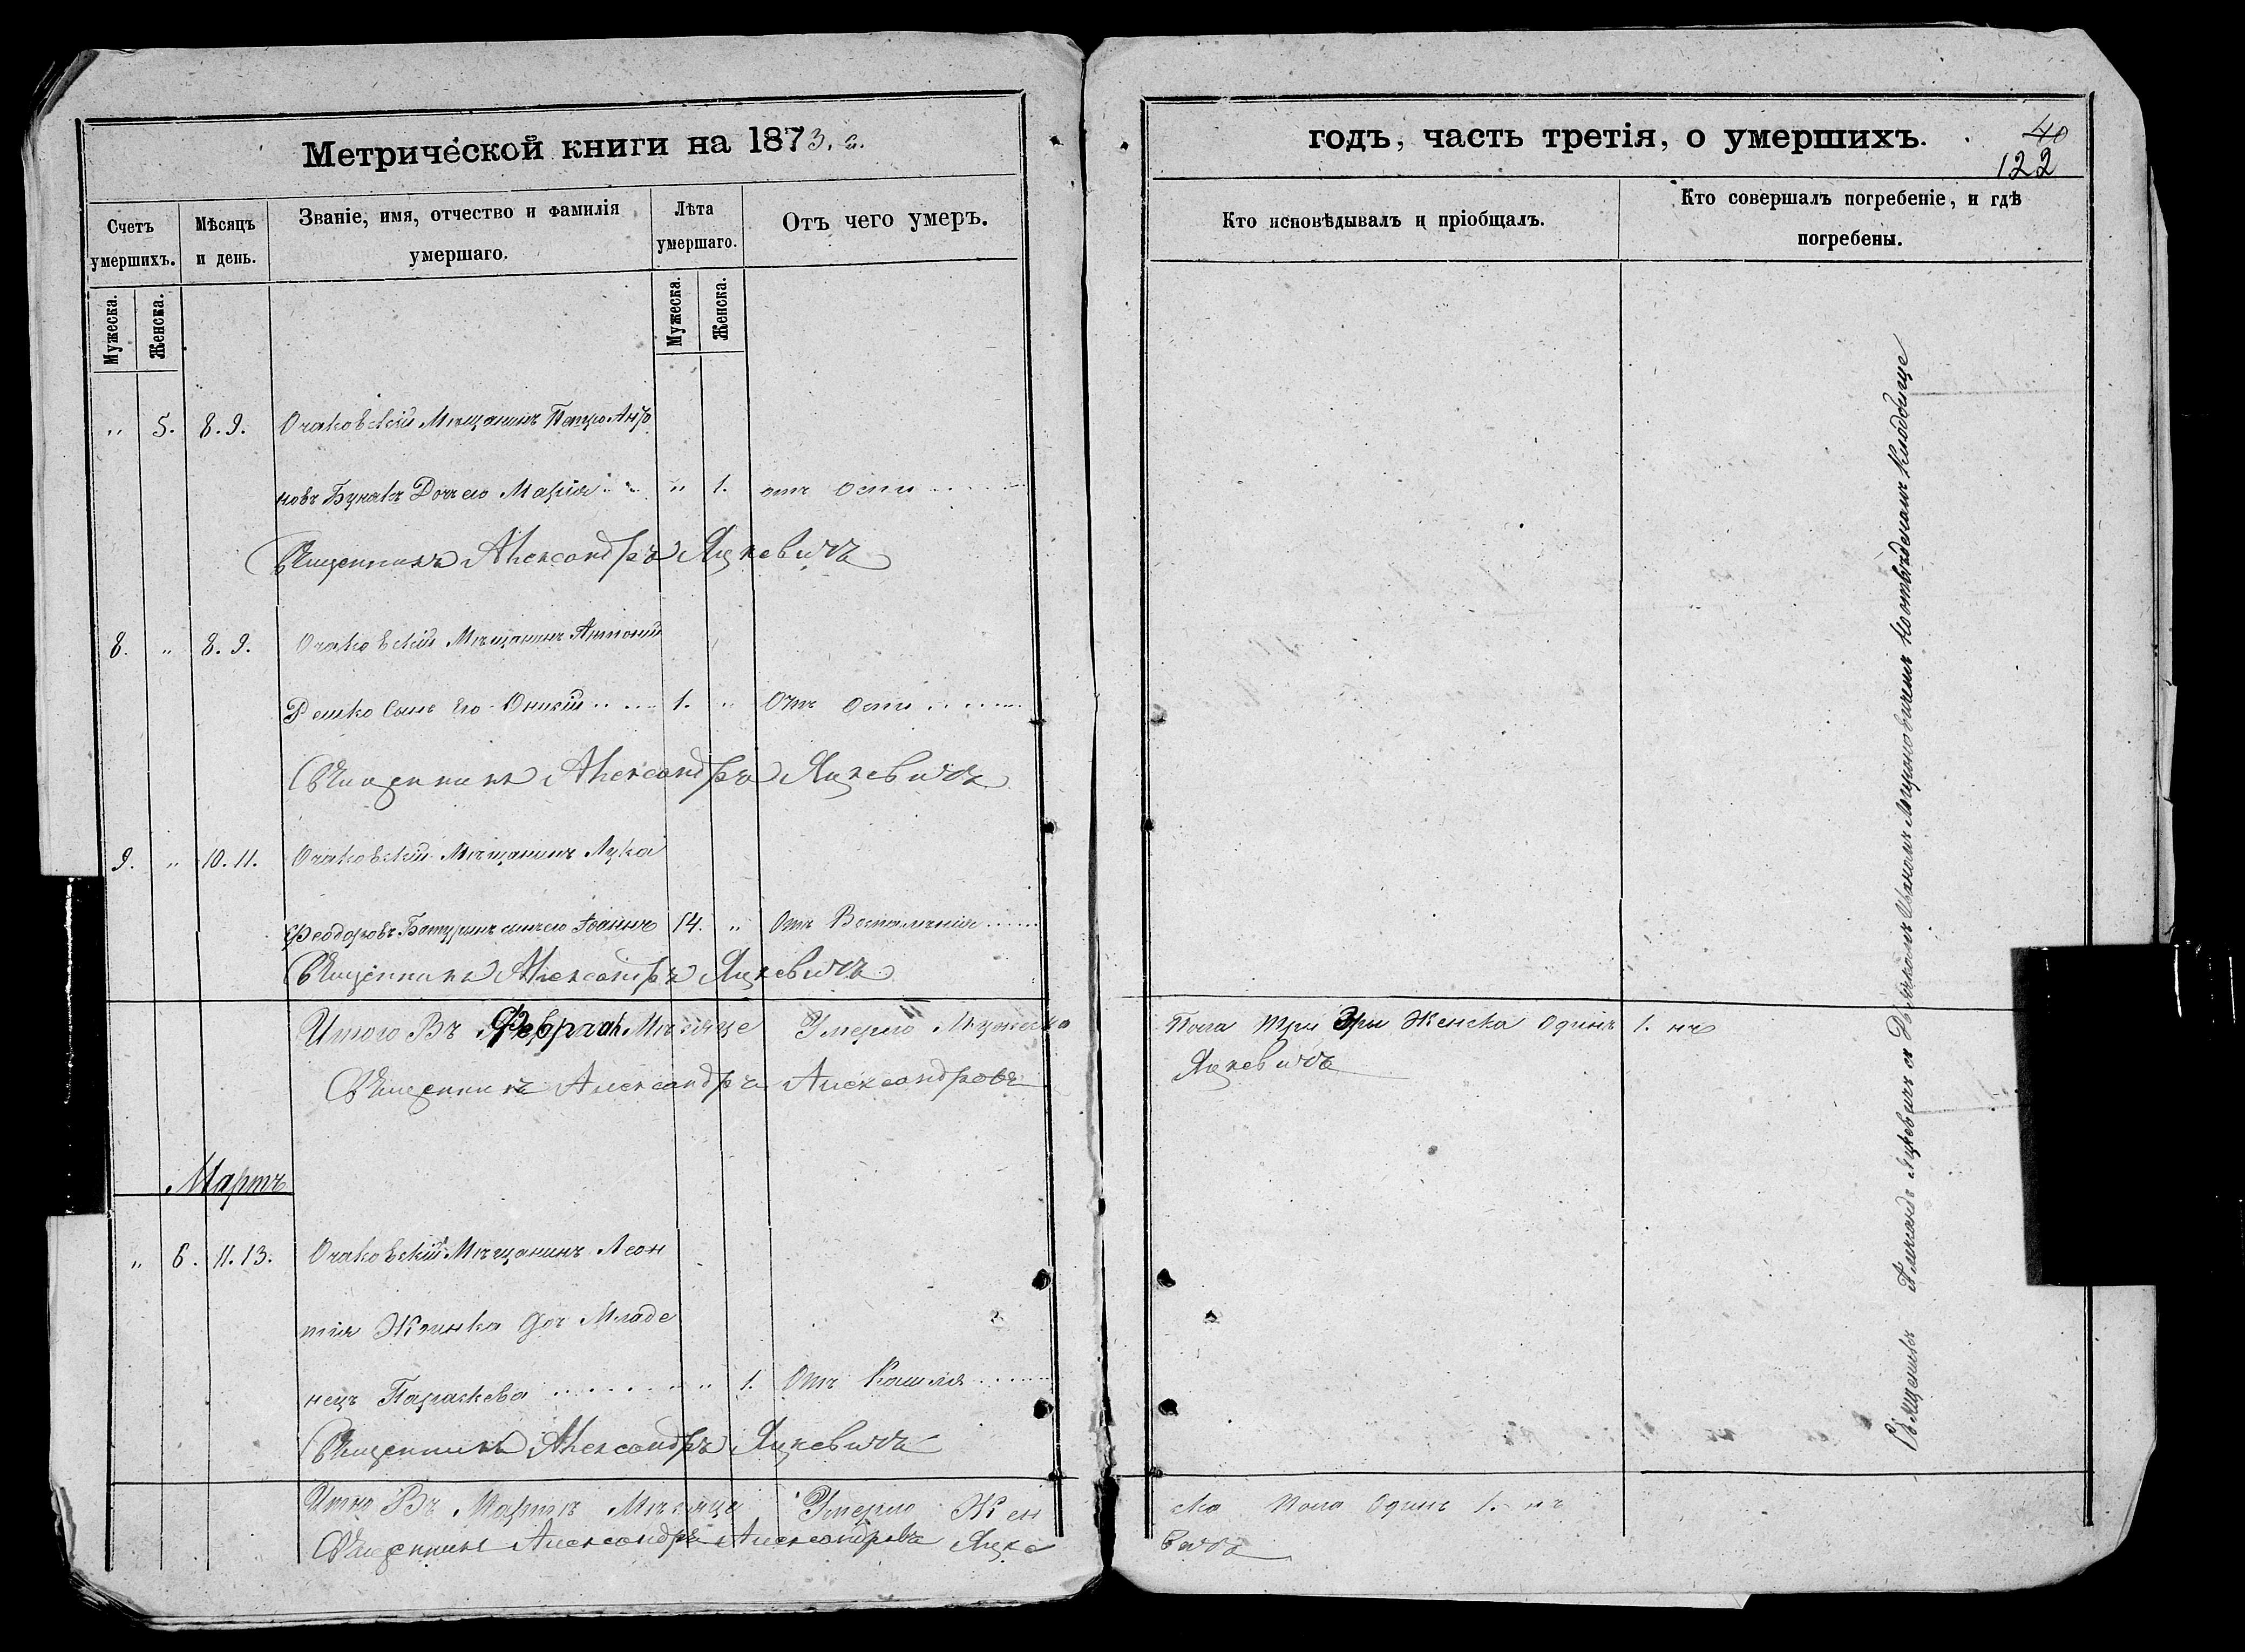 Метрической книги на 1873. г.
Счетъ умершихъ.
Мужеска.
Женска.
Мѣсяцъ и день.
Званіе, имя, отчество и фамилія умершаго.
Лѣта умершаго.
Мужеска.
Женска.
Отъ чего умеръ.
„ 5. 8.9. Очаковскій Мѣщанинъ Петро Антo
новъ Бунакъ Доч его Марія „ 1. отъ оспи
Священникъ Александръ Яцкевичъ
8. „ 8.9. Очаковскій Мѣщанинъ Антоній
Решко Сынъ Его Онисій 1. „ Отъ оспи
Священникъ Александръ Яцкевичъ
9. „ 10.11. Очаковскій Мѣщанинъ Лука
Феодоровъ Батуринъ сынъ его Іоаннъ 14. „ Отъ Воспаленія
Священникъ Александръ Яцкевичъ
Итого Въ Февралѣ Мѣсяце Умерло Мужеска
Священникъ Александръ Александровъ
Мартъ
„ 6. 11.13. Очаковскій Мѣщанинъ Леон
тія доч Младе
нецъ Параскева „ 1. Отъ Кашля
Священникъ Александръ Яцкевичъ
Итого Въ Мартѣ Мѣсяце Умерло Жен
Священникъ Александръ Александровъ Яцке
годъ, часть третія, о умершихъ.
40
122
Кто исповѣдывалъ и пріобщалъ.
Кто совершалъ погребеніе, и гдѣ погребены.
Пола три Женска Одинъ 1. нъ
Яцкевичъ
ска пола Одинъ 1. нъ
вичъ
Священникъ Александръ Яцкевичъ съ Дьячкомъ Иваномъ Мироновичемъ на отведеномъ Кладбище